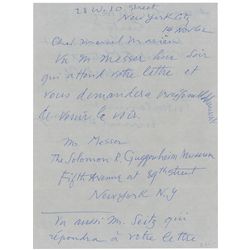 28 W. 10 Street
New York City
14 Nov 62
Cher Marcel Mariën
Vu M. Messer hier soir
qui attend votre lettre et
vous demandera
de venir le voir.
Mr. Messer
The Solomon R. Guggenheim Museum
Fifth Avenue at 89th Street
New York N.Y
Vu aussi M. Seitz qui
répondra à votre lettre